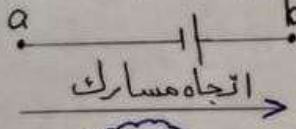 a
اتجاه مسارك